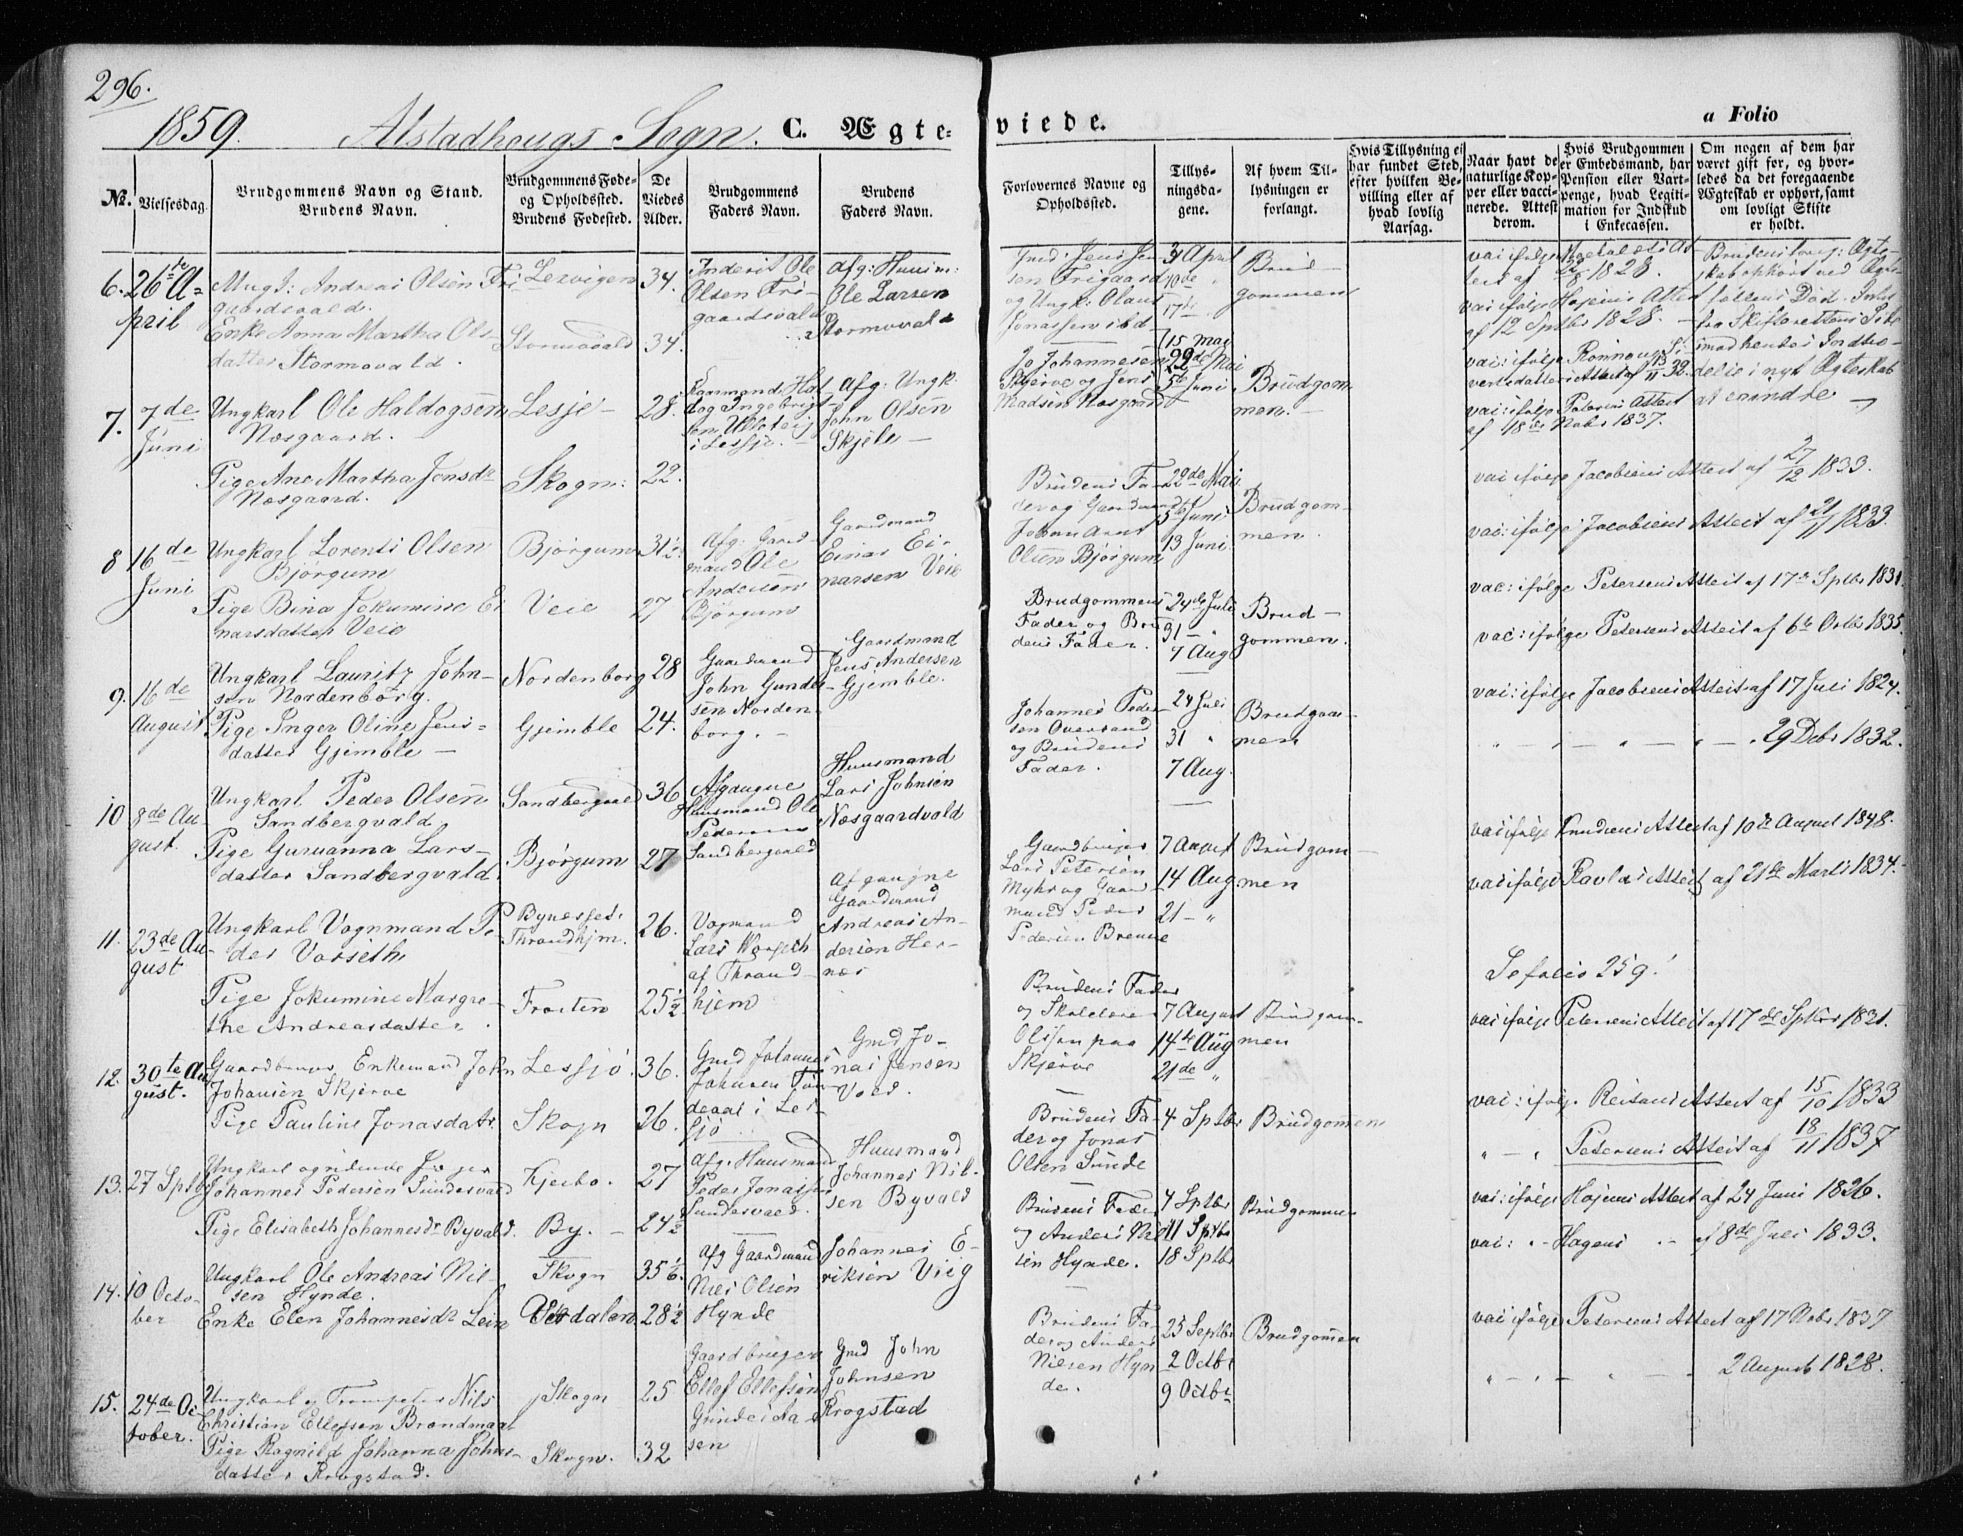 296.
1859. Alstadhougs Sogn. C. Ægteviede.
a Folio
No.
Vielsesdag.
Brudgommens Navn og Stand.
Brudens Navn.
Brudgommens Føde-
og Opholdssted.
Brudens Fødested.
De
Viedes
Alder.
Brudgommens
Faders Navn.
Brudens
Faders Navn.
Forlovernes Navne og
Opholdssted.
Tillys-
ningsda-
gene.
Af hvem Til-
lysningen er
forlangt.
Hvis Tillysning ei
har fundet Sted,
efter hvilken Be-
villing eller af
hvad lovlig
Aarsag.
Naar havt de
naturlige Kop-
per eller vacci-
nerede. Attest
derom.
Hvis Brudgommen
er Embedsmand, har
Pension eller Vart-
penge, hvad Legiti-
mation for Indskud
i Enkecassen.
Om nogen af dem har
været gift før, og hvor-
ledes da det foregaaende
Ægteskab er ophørt, samt
om lovligt Skifte
er holdt.
6. 26te A-
pril
Andreas Olsen Fri
gaardsvald.
Enke Anna Martha Ols-
datter Stormovald.
Lervigen
Stormovald
34.
34.
Ole
Olsen Fri-
gaardsvald
Afg: Huusm:
Ole Larsen
Stormovald
Frigaard
og Ungk: Olaus
3 April
10de
17de
Brud-
gommen
vac: ifølge
1828.
af 12 Sptbr 1828.
7. 7de
Juni
Ungkarl Ole Haldogsen
Næsgaard.
Pige Ane Martha Jonsdr
Næsgaard.
Lesje
Skogn:
28.
22.
i Lessje.
Afg: Ungk.
John Olsen
Skjele
Jo Johannesen
Skjerve og Jens
Madsen Næsgaard
15 Mai
22de Mai
5te Juni
Brudgom
men.
vac: ifølge
af 18de Nobr 1837.
8 16de
Juni
Ungkarl Lorents Olsen
Bjørgum
Pige Bina Jokumine Ei
narsdatter Veie
Bjørgum
Veie
31½
27
Afg: Gaard
mand Ole
Andersen
Bjørgum
Gaardmand
Einar Ei-
narsen Veie
Brudens Fa-
der og Gaardmand
Johan Arnt
Olsen Bjørgum
22de Mai
5te Juni
13 Juni
Brudgom-
men.
vac: ifølge Jacobsens Attest af 27/12 1833.
vac: ifølge Jacobsens Attest af 21/11 1833.
9. 16de
August
Ungkarl Lauritz John-
sen Nordenborg.
Pige Inger Oline Jens-
datter Gjemble
Nordenborg
Gjemble
28
24.
Gaardmand
John Gunder-
sen Norden-
borg.
Gaardmand
Jens Andersen
Gjemble.
Brudgommens
Fader og Bru
dens Fader.
24de Juli
31 "
7 Aug
Brud-
gommen.
vac: ifølge Petersens Attest af 17de Sptbr 1831
vac: ifølge Petersens Attest af 6te Octbr 1835.
10 8de Au-
gust.
Ungkarl Peder Olsen
Sandbergvald.
Pige Guruanna Lars-
datter Sandbergvald.
Sandbergvald
Bjørgum
36
27
Afgangne
Huusmand Ole
Pedersen
Sandbergvald
Huusmand
Lars Johnsen
Næsgaardvald
Johannes Peder-
sen Oversand
og Brudens
Fader.
24 Juli
31 "
7 Aug.
Brudgom-
men
vac: ifølge Jacobsens Attest af 17 Juli 1824.
" " " 29 Debr 1832.
11. 23de Au-
gust
Ungkarl Vognmand Pe-
der Vorseth
Pige Jokumine Margre-
the Andreasdatter.
Bynesset.
Throndhjm.
Frosten
26.
25½
Vogmand
Lars Worseth
af Thrond-
hjem
Afgangne
Gaardmand
Andreas An-
dersen Her-
næs
Gaardbruger
Lars Petersen
Myhr og Gaard
mand Peder
Pedersen Brenne
7 August
14 Aug
21 "
Brudgom-
men
vac: ifølge Knudsens Attest af 10de August 1848.
vac: ifølge Attest af 21de Marts 1834.
12. 30te Au
gust.
Gaardbruger Enkemand John
Johansen Skjerve
Pige Pauline Jonasdatr.
Lessjø.
Skogn
36.
26.
Gmd Johannes
Johnsen
i Les-
sjø
Gmd Jo-
nas Jensen
Voed.
Brudens Fader
og Skolelærer
Olsson paa
Skjerve
7 August
14de Aug
21de "
Brudgom-
men
Se folio 259.
vac: ifølge Petersens Attest af 17de Sptbr 1831.
13. 27 Sptbr
Ungkarl og ridende Jæger
Johannes Pedersen Sundesvald
Pige Elisabeth Johannesdr Byvald.
Kjerbo.
By.
27
24½
Afg: Huusmand
Peder Jonassen
Sundesvald.
Huusmand
Johannes Nil-
sen Byvald
Brudens Fa-
der og Jonas
Olsen Sunde
4 Sptbr
Brudgommen
vac: ifølge Reitans Attest af 15/10 1833
" " Petersens Attest af 18/11 1837
14. 10 Octo-
ber
Ungkarl Ole Andreas Nil-
sen Hynde.
Enke Elen Johannesdr Lein
Skogn
Værdalen
35 1/6.
28½
Afg Gaardmand
Niels Olsen
Hynde
Johannes E-
riksen Vieg
Brudens Fader
og Anders Niel
sen Hynde.
4 Sptbr
11 Sptbr
18 Sptbr
Brudgommen
vac: ifølge Højems Attest af 24 Juni 1826.
vac: " Hagens " af 8de Juli 1833.
15. 24de Oc
tober.
Ungkarl og Trompeter Nils
Christian Ellefsen Brandmoat
Pige Ragnild Johanna Johns-
datter Krogstad.
Skogn
Skogn.
25
32
Gaardbruger
Ellef Ellefsen
Gmd John
Johnsen
Krogstad
Brudens Fa-
der og Anders
Nielsen Hyn
de.
25 Septbr
2 Octbr
9 Octbr
Brudgommen
vac: ifølge Petersens Attest af 17 Nobr 1837
" " 2 August 1828.